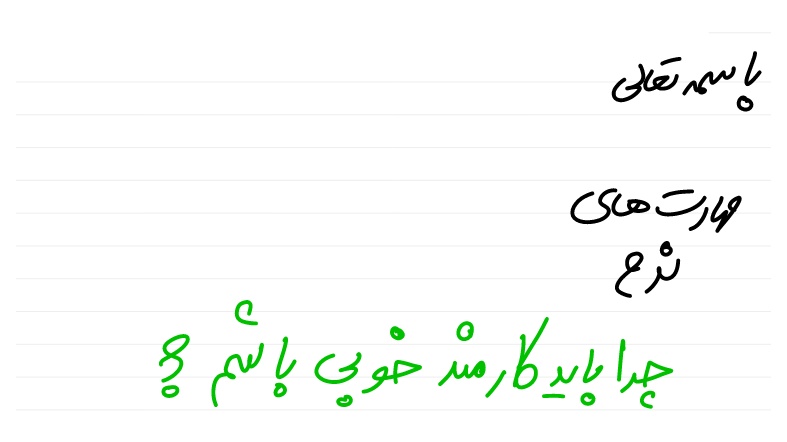 باسمه تعالی
مهارت‌های
نرم
چرا باید کارمند خوبی باشم؟